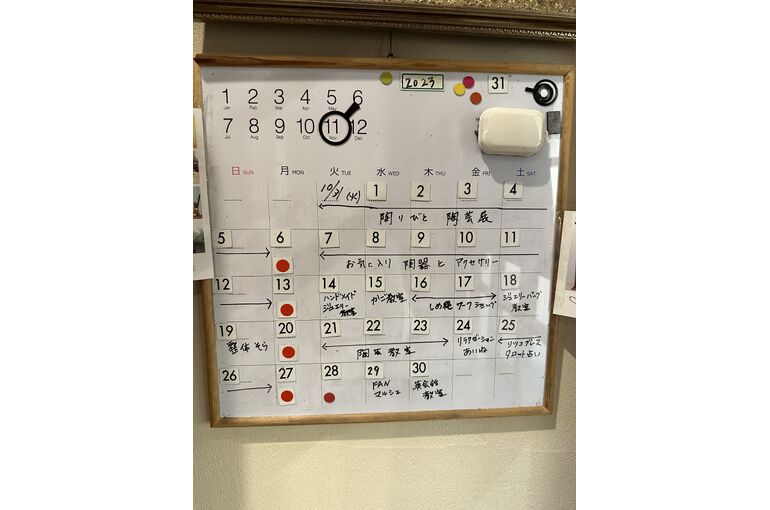 2023
31
1 2 3 4 5 6
Jan Feb Mar Apr May
7 8 9 10 11 12
Jul Aug Sep Oct Nov Dec
日 SUN 月 MON 火 TUE 水 WED 木 THU 金 FRI 土 SAT
10/31 (火) 1 2 3 4
陶りびと 陶芸展
5 6 7 8 9 10 11
お気に入り 陶器と アクセサリー
12 13 14 15 16 17 18
ハンドメイド
ジュエリー
教室
かご教室
しめ縄 ワークショップ
教室
19 20 21 22 23 24 25
整体 そら
陶芸教室
リラクゼーション
タロット占い
26 27 28 29 30
FAN
マルシェ
英会話
教室